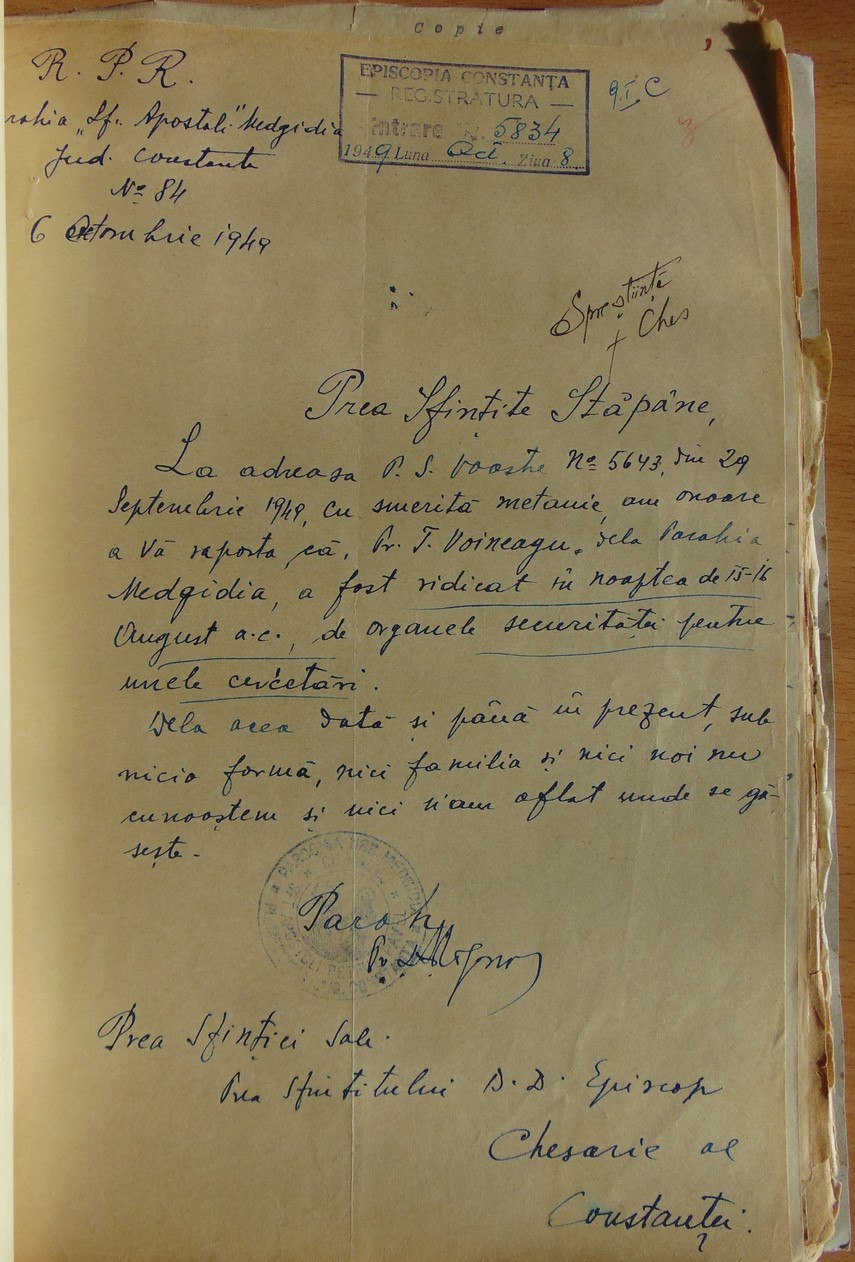 Copie
R. P. R.
rohia „Sf. Apostoli" Medgidia
Jud. Constanta
No 84
6 Octombrie 1949
EPISCOPIA CONSTANŢA
— REGISTRATURA —
Intrare N. 5834
1949 Luna Oct. Ziua 8
9.I.C
Spre ştiinţă
† Ches
Prea Sfinţite Stăpâne,
La adresa P. S. Voastre No 5643, din 29
Septembrie 1949, cu smerită metanie, am onoare
a Vă raporta că, Pr. T. Voineagu, dela Parohia
Medgidia, a fost ridicat în noaptea de 15-16
August a.c., de organele securităţei pentru
unele cercetări.
Dela acea dată si până în prezent, sub
nicio formă, nici familia şi nici noi nu
cunoaştem şi nici n'am aflat unde se gă-
seşte.
Paroh,
Pr.
Prea Sfinţiei Sale
Prea Sfinţitului D. D. Episcop
Chesarie al
Constanţei.